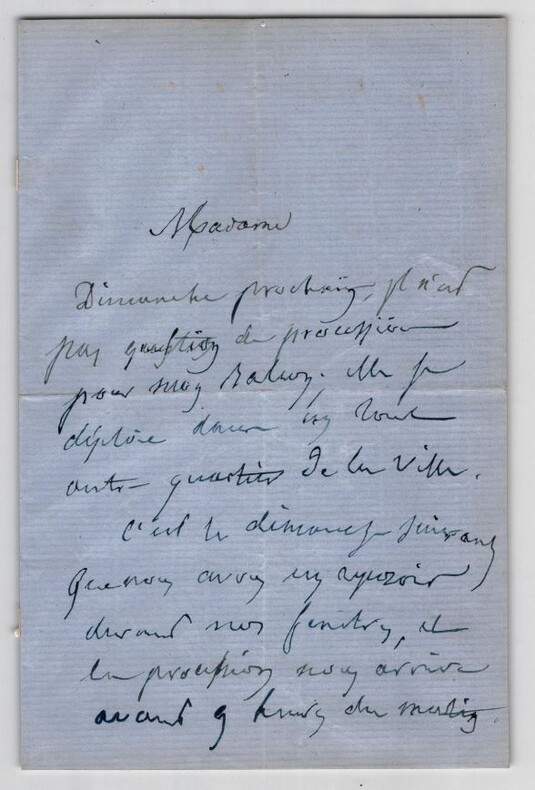 Madame
Dimanche prochain, il n'est
pas question de procession
pour mon balcon. Elle se
déploie dans un tout
autre quartier de la Ville.
C'est le dimanche suivant
que nous avons un reposoir
devant nos fenêtres, et
la procession nous arrive
avant 9 heures du matin.